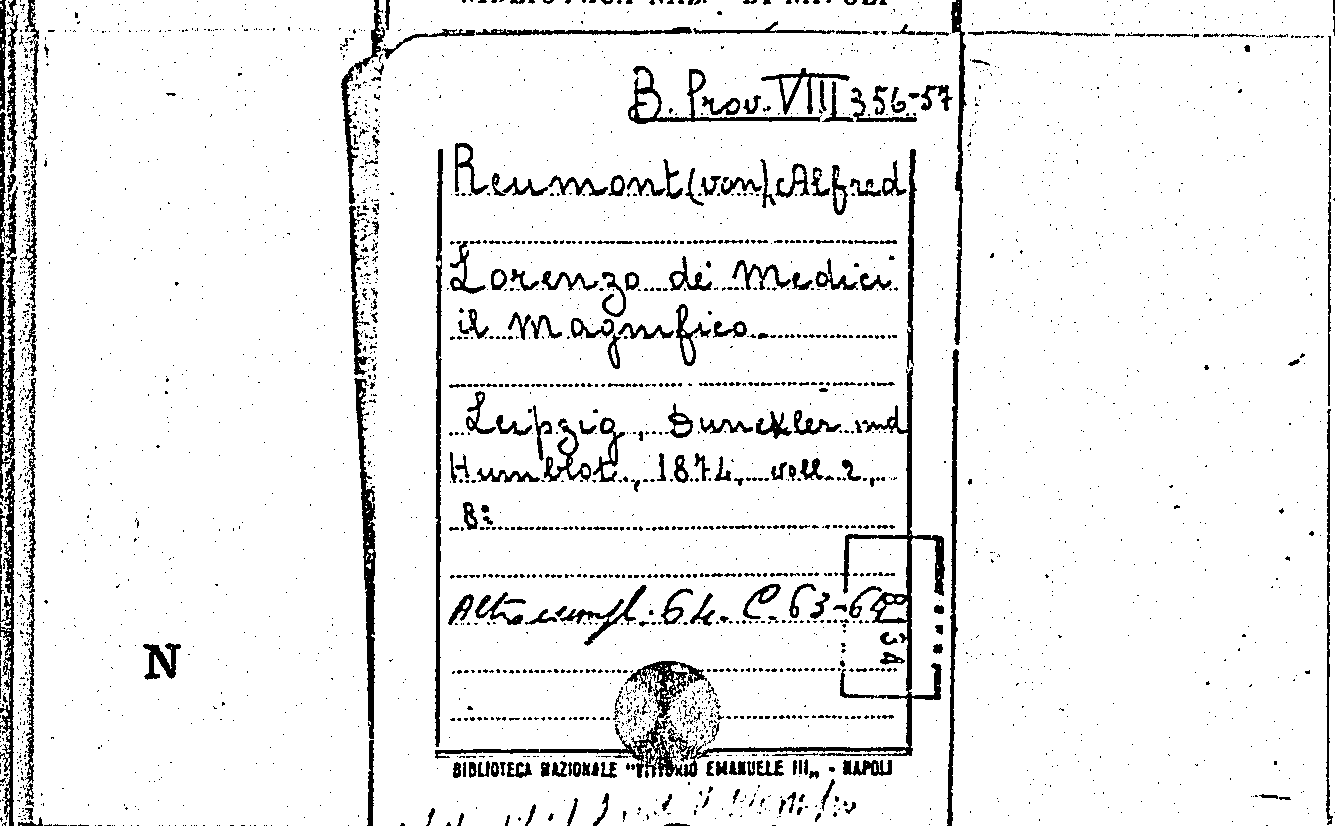 BIBLIOTECA NAZ. DI NAPOLI
B. Prov. VIII 356-57
Reumont (von), Alfred
Lorenzo dei Medici
il Magnifico.
Leipzig, Dunckler und
Humblot, 1874, voll. 2,
8:
Altro esempl. 64. C. 63-64
8134
N
BIBLIOTECA NAZIONALE "VITTORIO EMANUELE III„ - NAPOLI